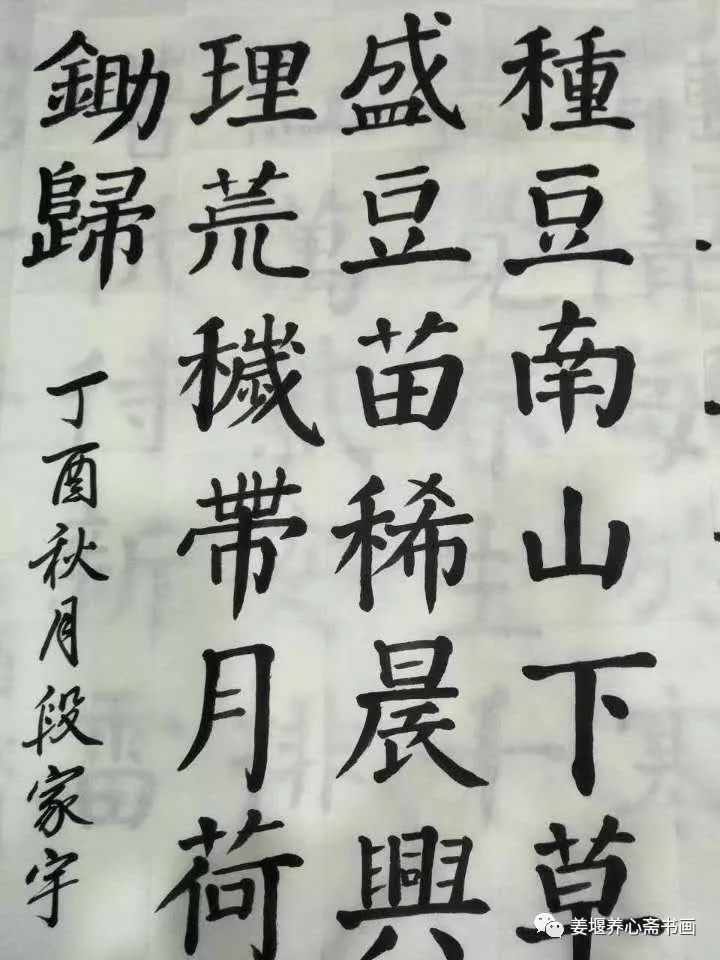 種豆南山下草
盛豆苗稀晨興
理荒穢帶月荷
鋤歸
丁酉秋月段家宇
姜堰养心斋书画